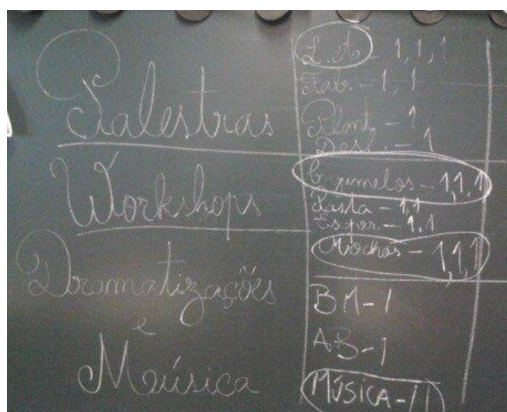 Palestras
Workshops
Dramatizações
e
Música
L.A. - 1, 1, 1
Fab. - 1, 1
Plant. - 1
Desc. - 1
Cogumelos - 1, 1, 1
Xista - 1, 1
Espor. - 1, 1
Mochos - 1, 1, 1
BM - 1
AB - 1
MÚSICA - 11